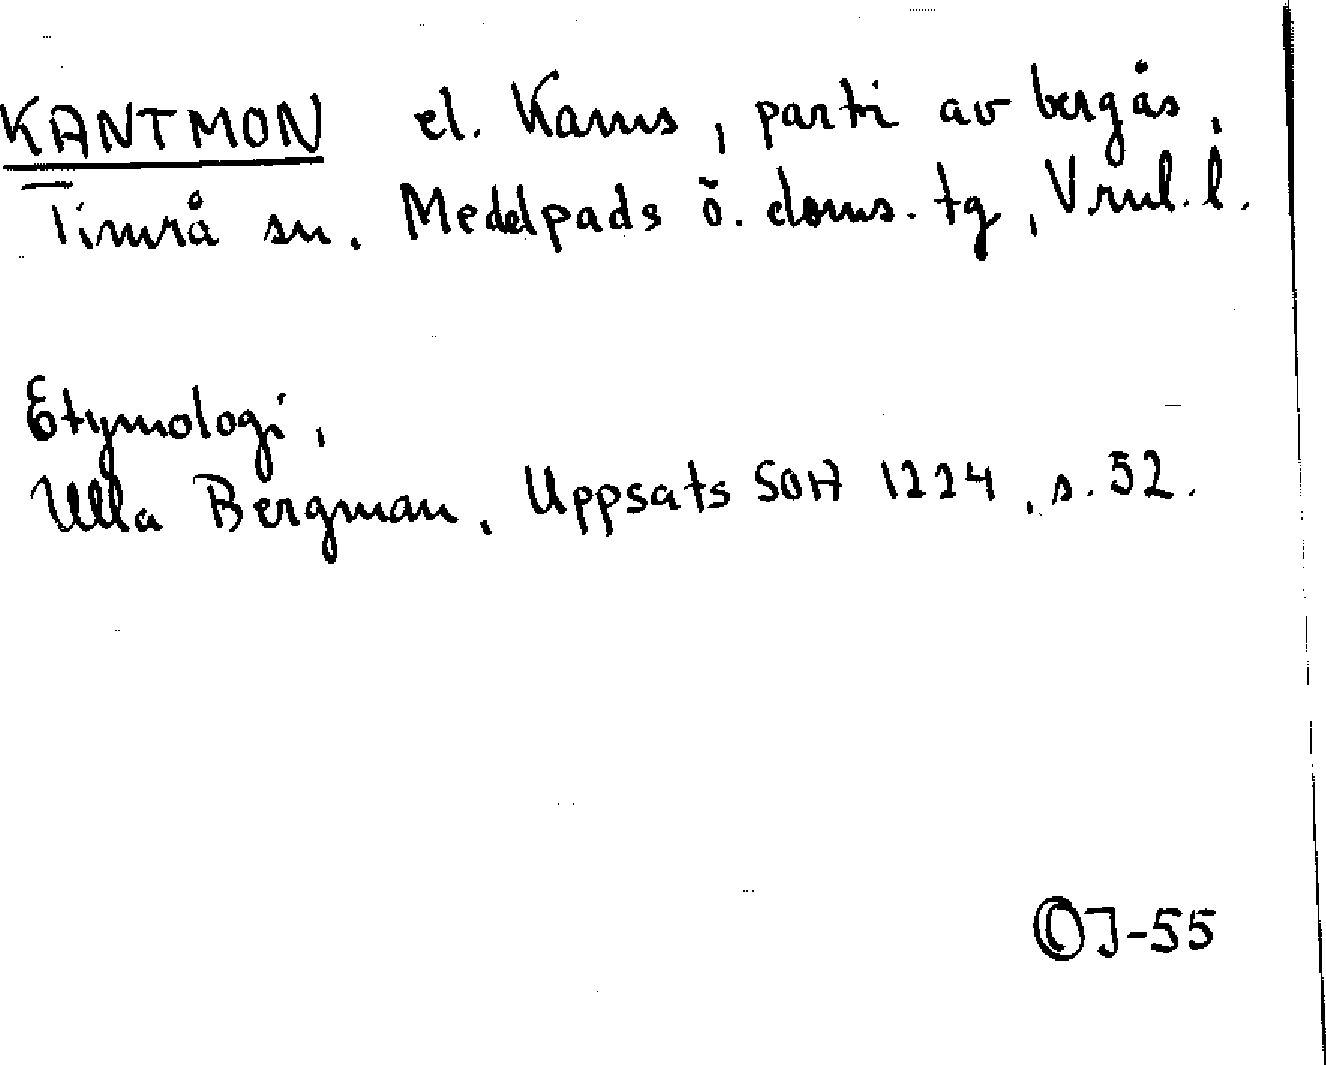 KANTMON el. Kams, parti av bergås,
Timrå sn. Medelpads ö. doms. tg, Vrnl. l.
Etymologi,
Ulla Bergman, Uppsats SOH 1224, s. 52.
OJ-55